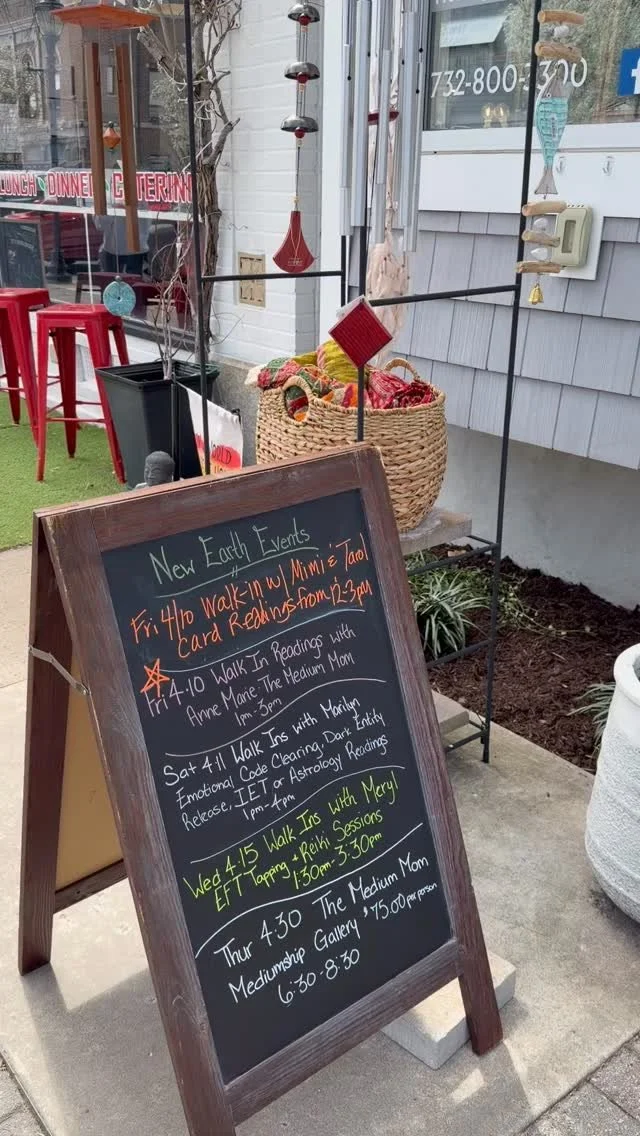 732-800-3300
LUNCH DINNER CATERING
New Earth Events
Fri 4/10 Walk-in w/ Mimi & Tarot
Card Readings from 12-3pm
Fri 4-10 Walk In Readings with
Anne Marie-The Medium Mom
1pm-3pm
Sat 4-11 Walk Ins with Marilyn
Emotional Code Clearing, Dark Entity
Release, IET or Astrology Readings
1pm-4pm
Wed 4.15 Walk Ins with Meryl
EFT Tapping + Reiki Sessions
1:30pm-3:30pm
Thur 4.30 The Medium Mom
Mediumship Gallery $75.00 per person
6:30-8:30